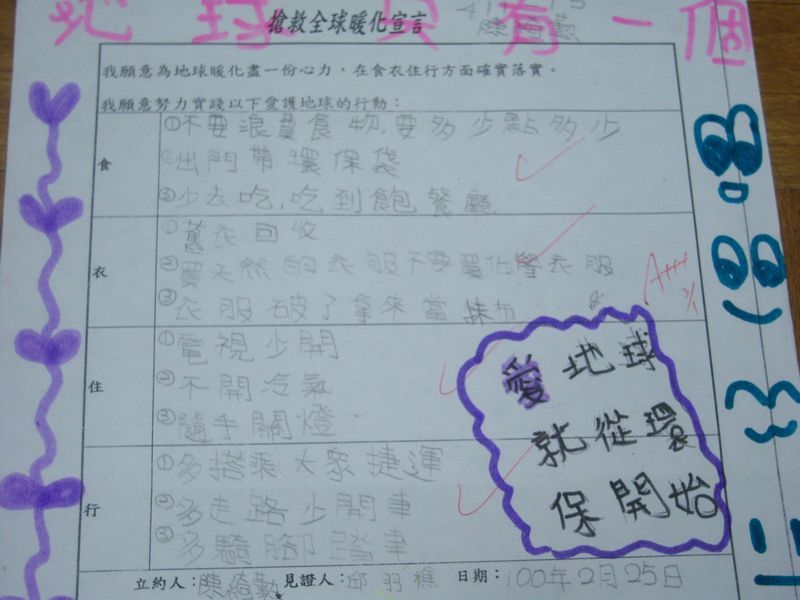 地球只有一個
搶救全球暖化宣言
我願意為地球暖化盡一份心力，在食衣住行方面確實落實。
我願意努力實踐以下愛護地球的行動：
食
①不要浪費食物,要多少點多少
②出門帶環保袋
③少去吃,吃到飽餐廳
衣
①舊衣回收
②買天然的衣服不要買化學衣服
③衣服破了拿來當抹布
A+++
住
①電視少開
②不開冷氣
③隨手關燈
愛地球
就從環
保開始
行
①多搭乘大眾捷運
②多走路少開車
③多騎腳踏車
立約人：陳綺勳 見證人：邱羽樵 日期：100年2月25日